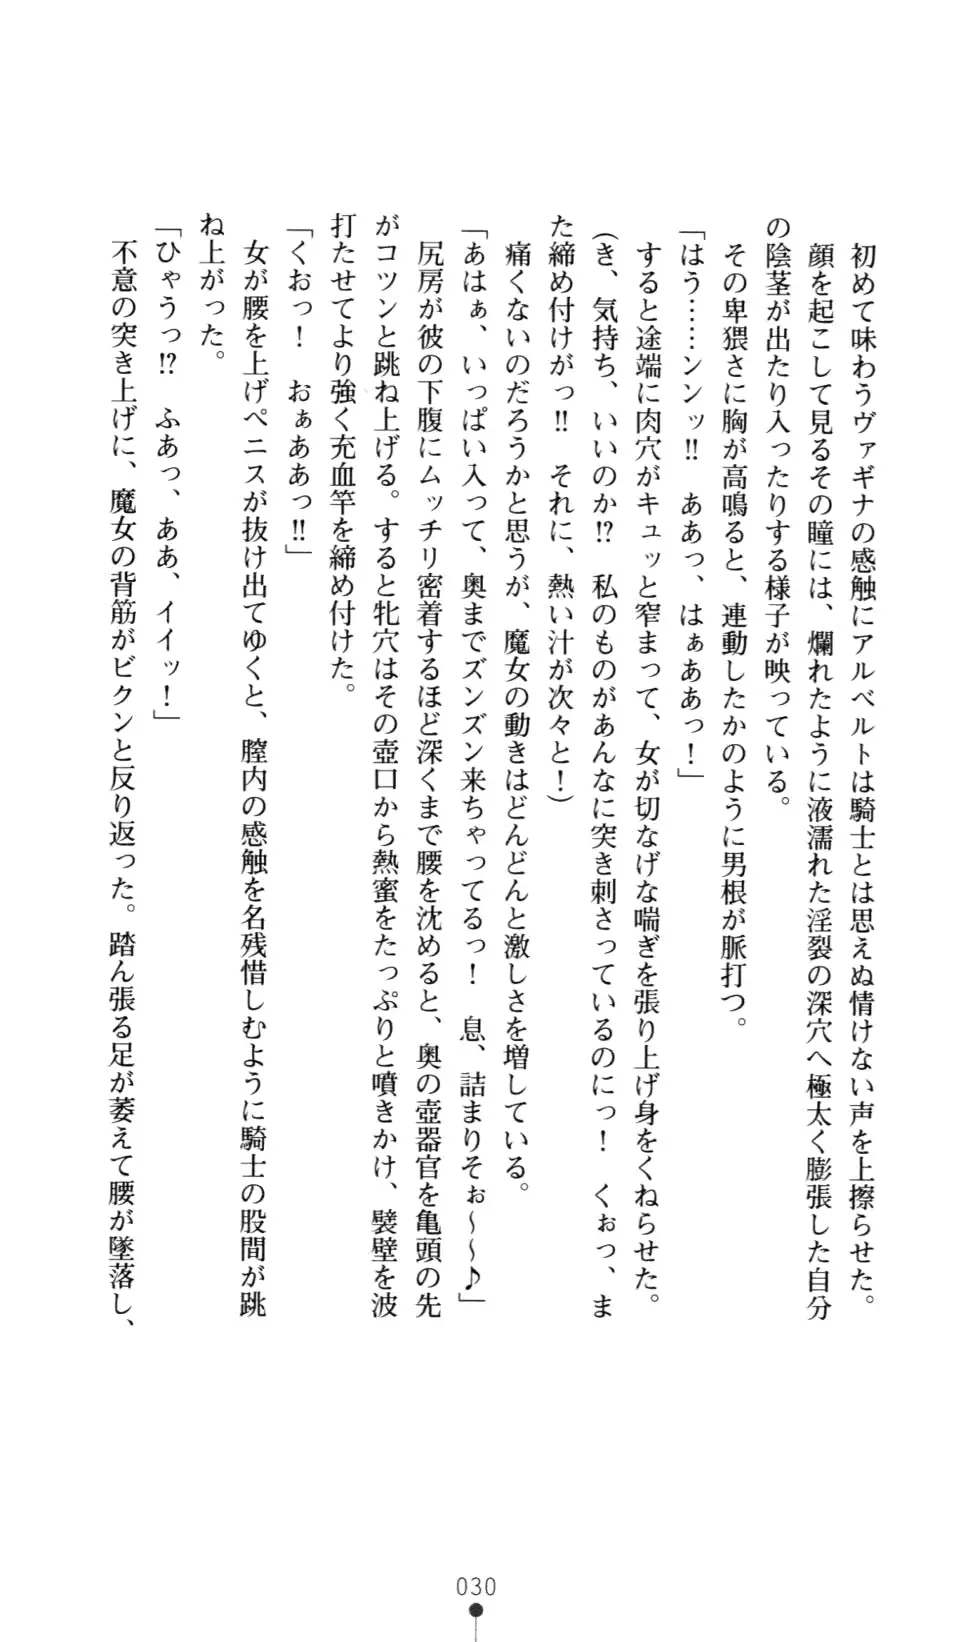 初めて味わうヴァギナの感触にアルベルトは騎士とは思えぬ情けない声を上擦らせた。
顔を起こして見るその瞳には、爛れたように液濡れた淫裂の深穴へ極太く膨張した自分
の陰茎が出たり入ったりする様子が映っている。
その卑猥さに胸が高鳴ると、連動したかのように男根が脈打つ。
「はう……ンンッ‼　ああっ、はぁああっ！」
すると途端に肉穴がキュッと窄まって、女が切なげな喘ぎを張り上げ身をくねらせた。
（き、気持ち、いいのか⁉　私のものがあんなに突き刺さっているのにっ！　くぉっ、ま
た締め付けがっ‼　それに、熱い汁が次々と！）
痛くないのだろうかと思うが、魔女の動きはどんどんと激しさを増している。
「あはぁ、いっぱい入って、奥までズンズン来ちゃってるっ！　息、詰まりそぉ～～♪」
尻房が彼の下腹にムッチリ密着するほど深くまで腰を沈めると、奥の壺器官を亀頭の先
がコツンと跳ね上げる。すると牝穴はその壺口から熱蜜をたっぷりと噴きかけ、襞壁を波
打たせてより強く充血竿を締め付けた。
「くおっ！　おぁああっ‼」
女が腰を上げペニスが抜け出てゆくと、膣内の感触を名残惜しむように騎士の股間が跳
ね上がった。
「ひゃうっ⁉　ふあっ、ああ、イイッ！」
不意の突き上げに、魔女の背筋がビクンと反り返った。踏ん張る足が萎えて腰が墜落し、
030